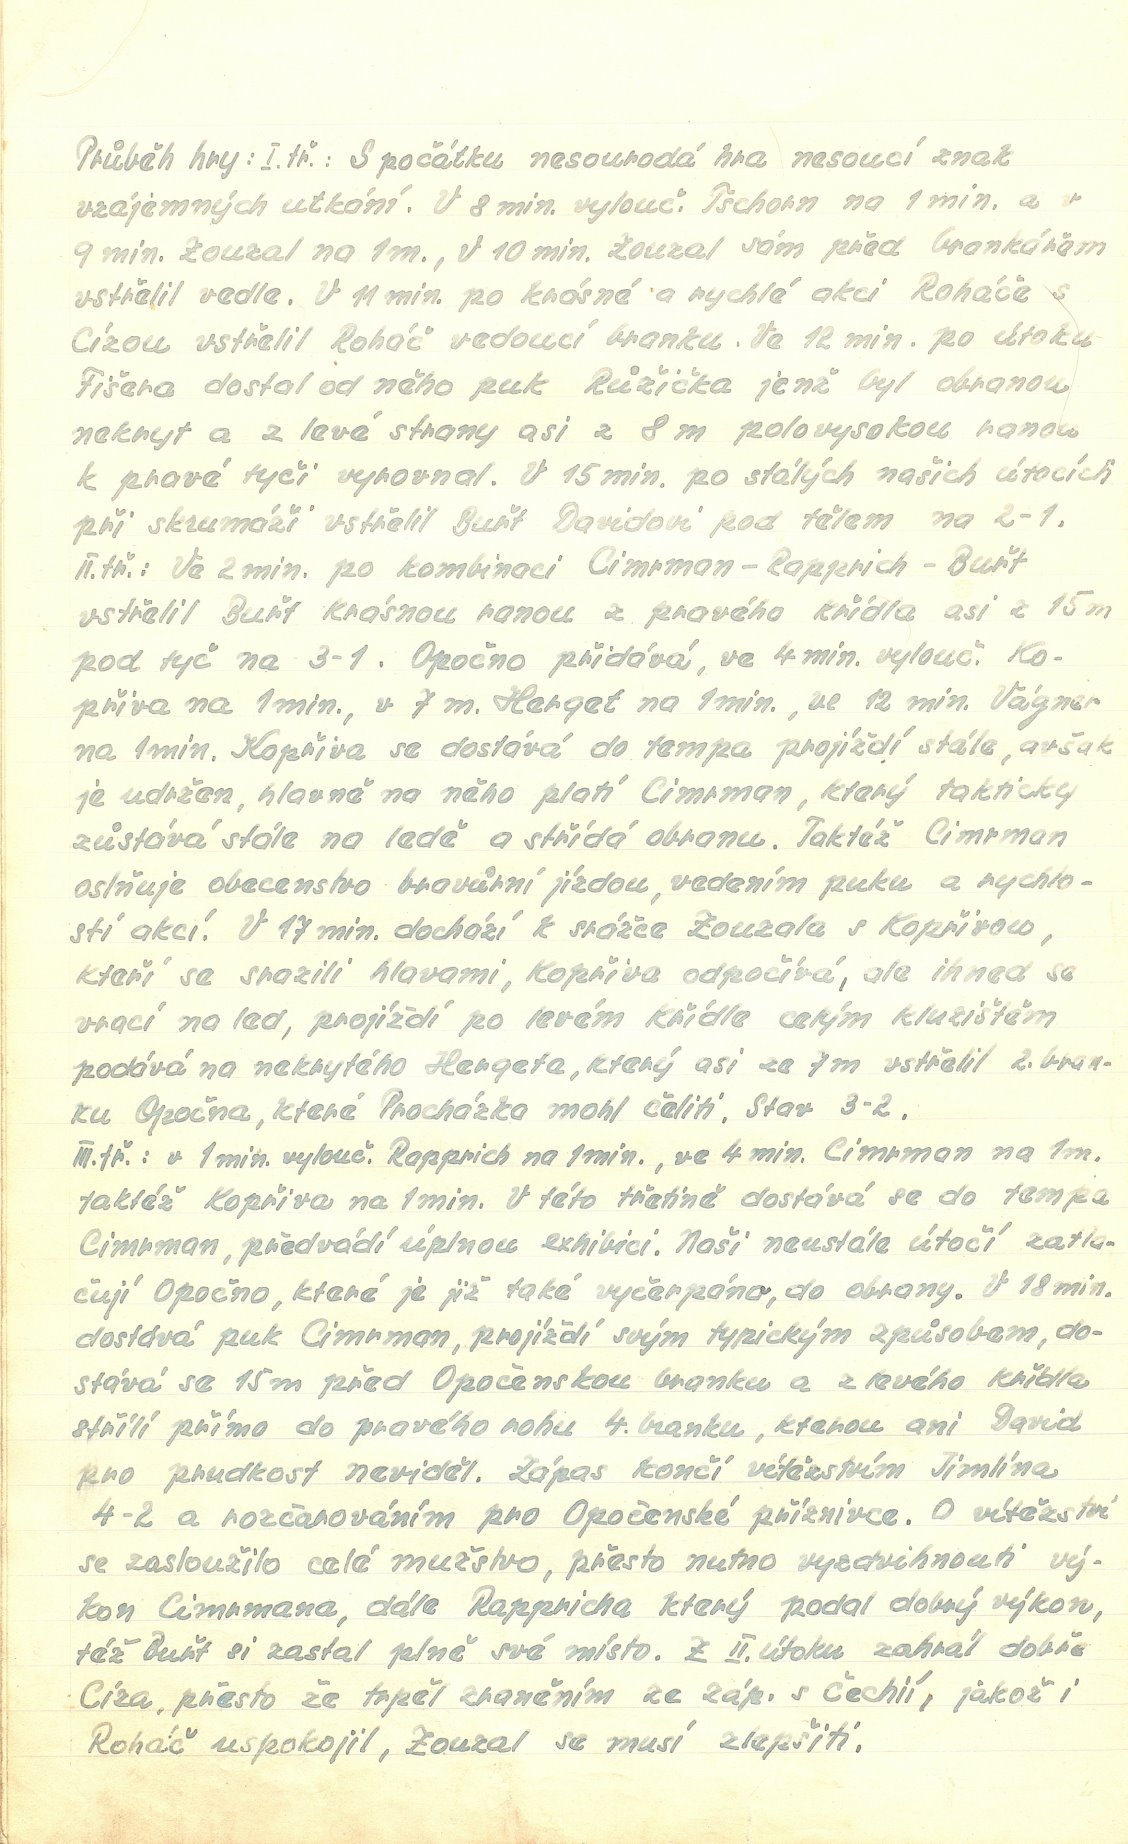 Průběh hry: I. tř.: S počátku nesourodá hra nesoucí znak
vzájemných utkání. V 8 min. vylouč. Tschorn na 1 min. a v
9 min. Zouzal na 1 m., V 10 min. Zouzal sám před brankářem
vstřelil vedle. V 11 min. po krásné a rychlé akci Roháče s
Cízou vstřelil Roháč vedoucí branku. Ve 12 min. po útoku
Fišera dostal od něho puk Růžička jenž byl obranou
nekryt a z levé strany asi z 8 m polovysokou ranou
k pravé tyči vyrovnal. V 15 min. po stálých našich útocích
při skrumáži vstřelil Buřt Davidovi pod tělem na 2-1.
II. tř.: Ve 2 min. po kombinaci Cimrman - Rapprich - Buřt
vstřelil Buřt krásnou ranou z pravého křídla asi z 15 m
pod tyč na 3-1. Opočno přidává, ve 4 min. vylouč. Ko-
přiva na 1 min., v 7 m. Herget na 1 min., ve 12 min. Vágner
na 1 min. Kopřiva se dostává do tempa projíždí stále, avšak
je udržen, hlavně na něho platí Cimrman, který takticky
zůstává stále na ledě a střídá obranu. Taktéž Cimrman
oslňuje obecenstvo bravůrní jízdou, vedením puku a rychlo-
stí akcí. V 17 min. dochází k srážce Zouzala s Kopřivou,
kteří se srazili hlavami, Kopřiva odpočívá, ale ihned se
vrací na led, projíždí po levém křídle celým kluzištěm
podává na nekrytého Hergeta, který asi ze 7 m vstřelil 2. bran-
ku Opočna, které Procházka mohl čeliti. Stav 3-2.
III. tř.: v 1 min. vylouč. Rapprich na 1 min., ve 4 min. Cimrman na 1 m.
taktéž Kopřiva na 1 min. V této třetině dostává se do tempa
Cimrman, předvádí úplnou exhibici. Naši neustále útočí zatla-
čují Opočno, které je již také vyčerpáno, do obrany. V 18 min.
dostává puk Cimrman, projíždí svým typickým způsobem, do-
stává se 15 m před Opočenskou branku a z levého křídla
střílí přímo do pravého rohu 4. branku, kterou ani David
pro prudkost neviděl. Zápas končí vítězstvím Jimlína
4-2 a rozčarováním pro Opočenské příznivce. O vítězství
se zasloužilo celé mužstvo, přesto nutno vyzdvihnouti vý-
kon Cimrmana, dále Rappricha který podal dobrý výkon,
též Buřt si zastal plně své místo. Z II. útoku zahrál dobře
Cíza, přesto že trpěl zraněním ze záp. s Čechií, jakož i
Roháč uspokojil, Zouzal se musí zlepšiti.